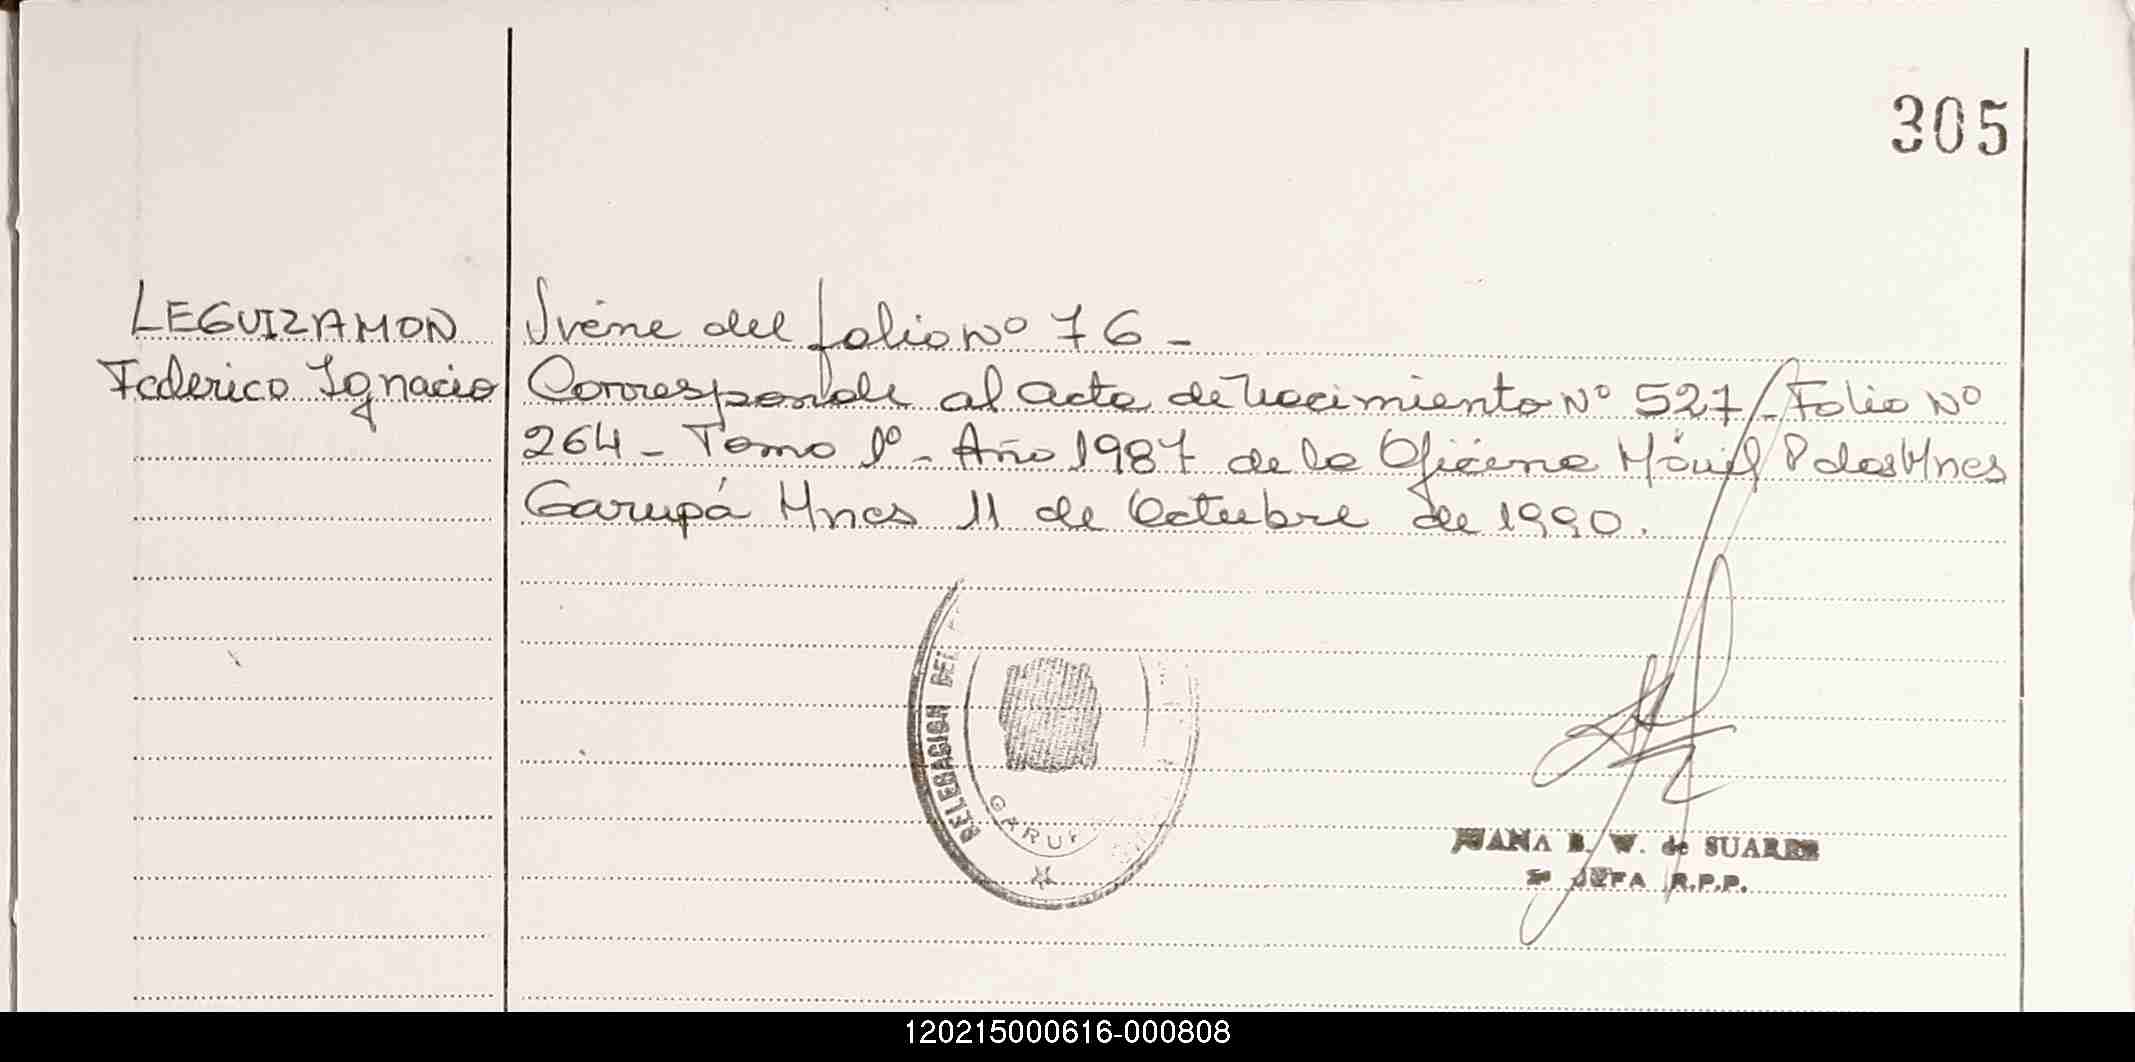 305
LEGUIZAMON
Federico Ignacio
Viene del folio Nº 76 -
Corresponde al acta de Nacimiento Nº 527 - Folio Nº
264 - Tomo 1º - Año 1987 de la Oficina Móvil Pdas Mnes
Garupá Mnes 11 de Octubre de 1990.
DELEGACION DEL
GARU
JUANA B. W. de SUAREZ
JEFA R.P.P.
120215000616-000808